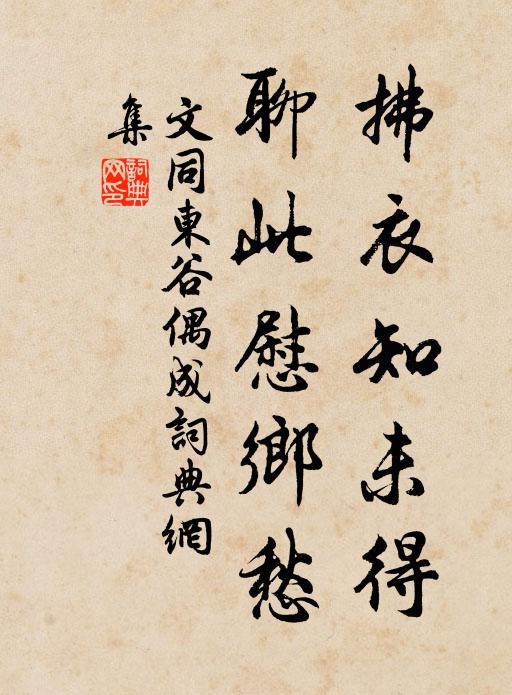 拂衣知未得
聊此慰鄉愁
文同東谷偶成詞典網
集
詞典
网印